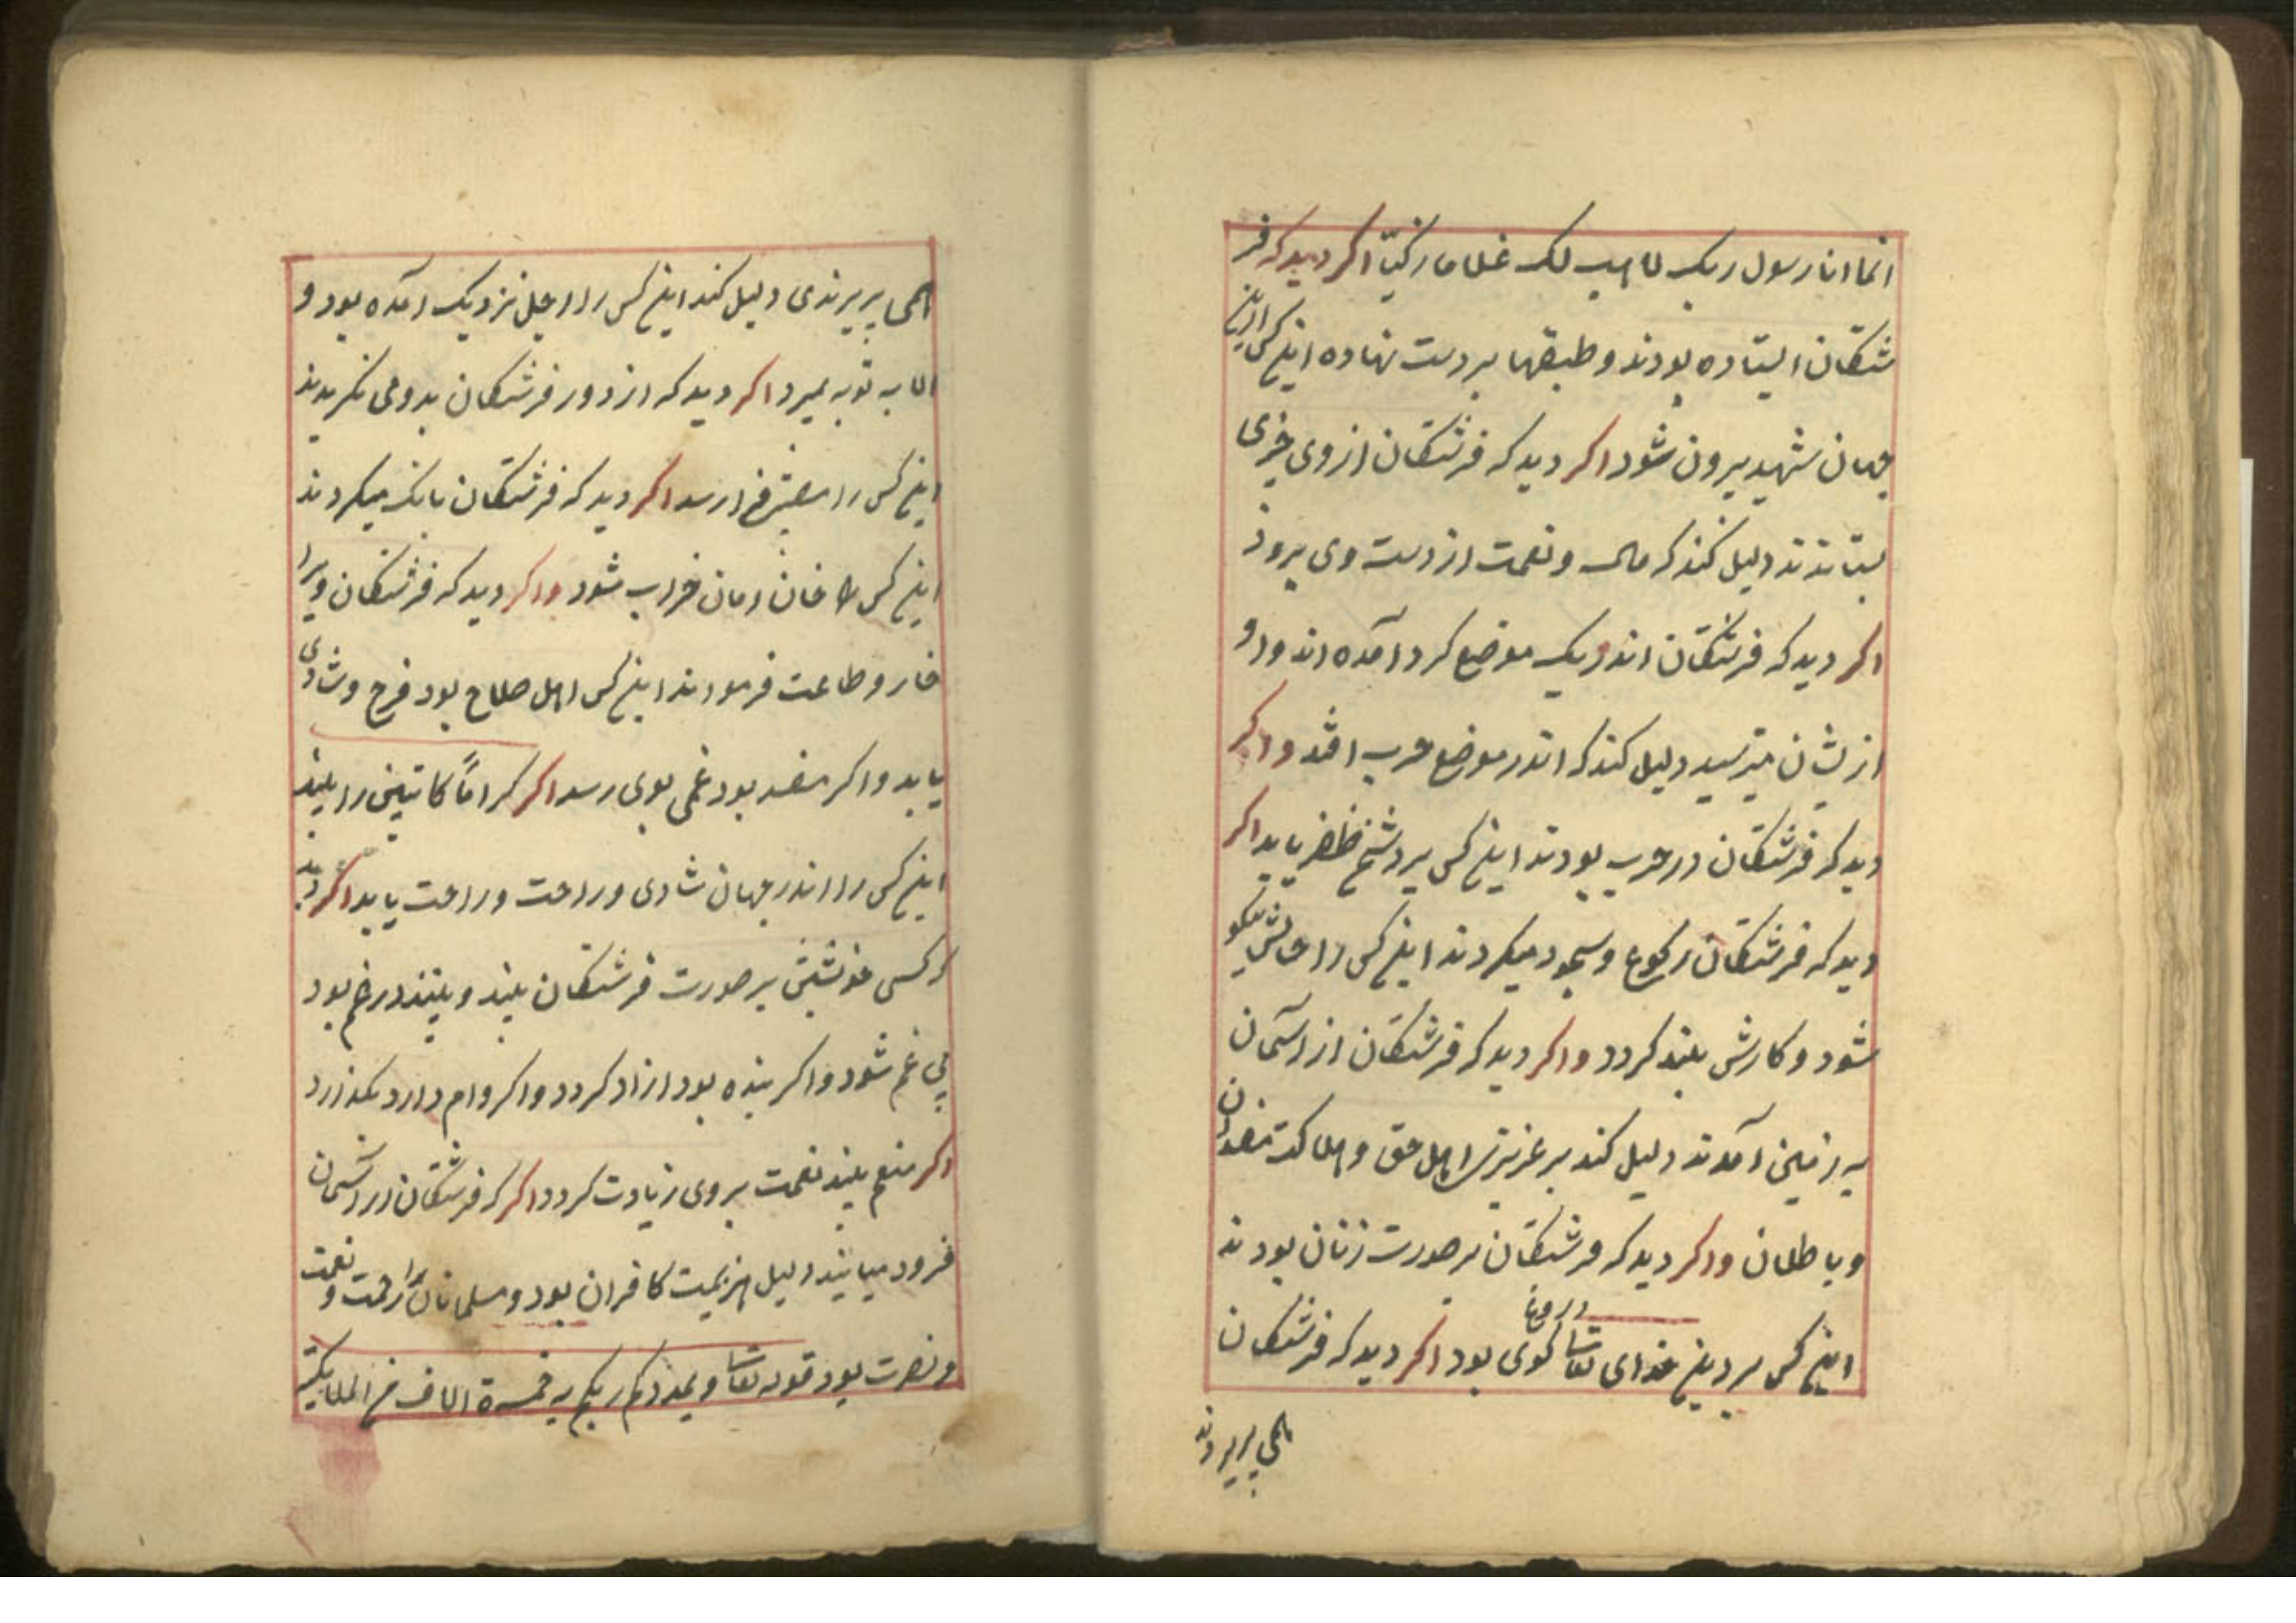 انما انا رسول ربک لاهب لک غلاما زکیّا اکر دید که فر
شتکان ایستاده بودند و طبقها بر دست نهاده این کس ازین
جهان شهید بیرون شود اکر دید که فرشتکان از وی چیزی
بستاندند دلیل کند که مال و نعمت از دست وی برود
اکر دید که فرشتکان اندر یک موضع کرد آمده اند و او
ازیشان میترسید دلیل کند که اندر موضع حرب افتد واکر
دید که فرشتکان در حرب بودند این کس بر دشمن ظفر یابد اکر
دید که فرشتکان رکوع و سجود میکردند این کس را حالش نیکو
شود و کارش بلند کردد واکر دید که فرشتکان از آسمان
به زمین آمدند دلیل کند بر عزیزی اهل حق و هلاکت مفسدان
و باطلان واکر دید که فرشتکان بر صورت زنان بودند
این کس بر دین خدای تعالی دروغ کوی بود اکر دید که فرشتکان
همی پریدند
همی پریدندی دلیل کند این کس را اجل نزدیک آمده بود و
الا به توبه بمیرد اکر دید که از دور فرشتکان بدو می نکریدند
این کس را رسد اکر دید که فرشتکان بانک میکردند
این کس را خان ومان خراب شود واکر دید که فرشتکان ویرا
و طاعت فرمودند این کس اهل صلاح بود فرح و شادی
یابد واکر مفسد بود غمی بوی رسد اکر کراماً کاتبین را بیند
این کس را اندر جهان شادی و راحت و راحت یابد اکر دید
که کسی خویشتن بر صورت فرشتکان بیند و بیند در غم بود
بی غم شود واکر بنده بود ازاد کردد واکر وام دارد بکذارد
اکر منعم بیند نعمت بر وی زیادت کردد اکر که فرشتکان از آسمان
فرود میایند دلیل هزیمت کافران بود و مسلمانان را رحمت و نعمت
و نصرت بود قوله تعالی و یمددکم ربکم به خمسة الاف من الملایکة